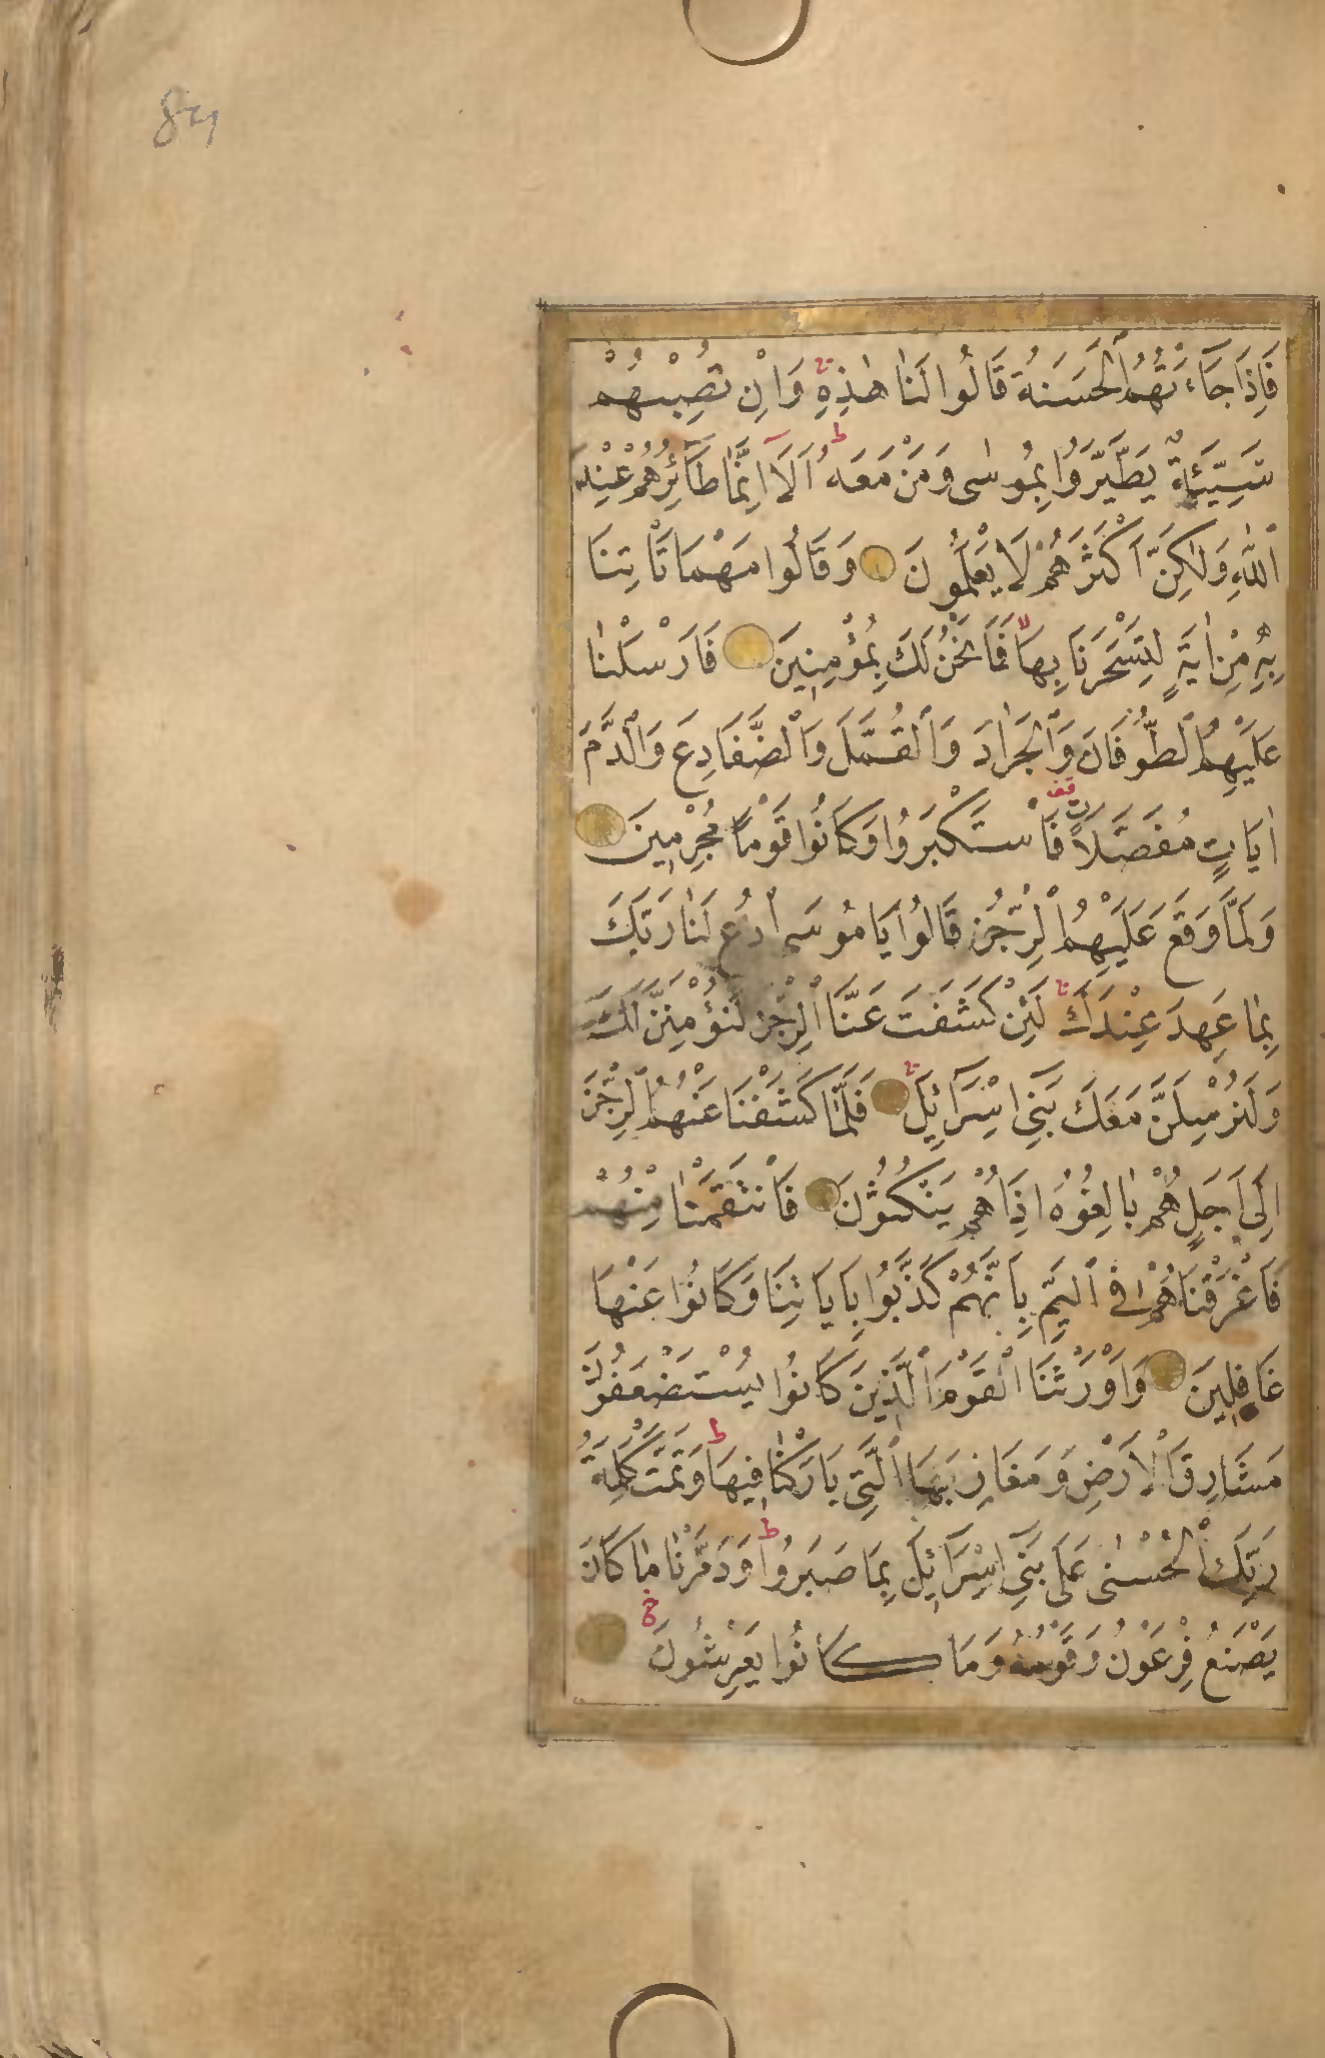 فَاِذَا جَاءَتْهُمُ ٱلْحَسَنَةُ قَالُوا لَنَا هٰذِهِ وَاِنْ تُصِبْهُمْ
سَيِّئَةٌ يَطَّيَّرُوا بِمُوسٰى وَمَنْ مَعَهُ اَلَا اِنَّمَا طَائِرُهُمْ عِنْدَ
ٱللّٰهِ وَلٰكِنَّ اَكْثَرَهُمْ لَا يَعْلَمُونَ وَقَالُوا مَهْمَا تَاْتِنَا
بِهِ مِنْ اٰيَةٍ لِتَسْحَرَنَا بِهَا فَمَا نَحْنُ لَكَ بِمُؤْمِنِينَ فَاَرْسَلْنَا
عَلَيْهِمُ ٱلطُّوفَانَ وَٱلْجَرَادَ وَٱلْقُمَّلَ وَٱلضَّفَادِعَ وَٱلدَّمَ
اٰيَاتٍ مُفَصَّلَاتٍ فَاسْتَكْبَرُوا وَكَانُوا قَوْمًا مُجْرِمِينَ
وَلَمَّا وَقَعَ عَلَيْهِمُ ٱلرِّجْزُ قَالُوا يَا مُوسَى ادْعُ لَنَا رَبَّكَ
بِمَا عَهِدَ عِنْدَكَ لَئِنْ كَشَفْتَ عَنَّا ٱلرِّجْزَ لَنُؤْمِنَنَّ لَكَ
وَلَنُرْسِلَنَّ مَعَكَ بَنِي اِسْرَائِيلَ فَلَمَّا كَشَفْنَا عَنْهُمُ ٱلرِّجْزَ
اِلٰى اَجَلٍ هُمْ بَالِغُوهُ اِذَا هُمْ يَنْكُثُونَ فَانْتَقَمْنَا مِنْهُمْ
فَاَغْرَقْنَاهُمْ فِي ٱلْيَمِّ بِاَنَّهُمْ كَذَّبُوا بِاٰيَاتِنَا وَكَانُوا عَنْهَا
غَافِلِينَ وَاَوْرَثْنَا ٱلْقَوْمَ ٱلَّذِينَ كَانُوا يُسْتَضْعَفُونَ
مَشَارِقَ ٱلْاَرْضِ وَمَغَارِبَهَا ٱلَّتِي بَارَكْنَا فِيهَا وَتَمَّتْ كَلِمَةُ
رَبِّكَ ٱلْحُسْنٰى عَلٰى بَنِي اِسْرَائِلَ بِمَا صَبَرُوا وَدَمَّرْنَا مَا كَانَ
يَصْنَعُ فِرْعَوْنُ وَقَوْمُهُ وَمَا كَانُوا يَعْرِشُونَ